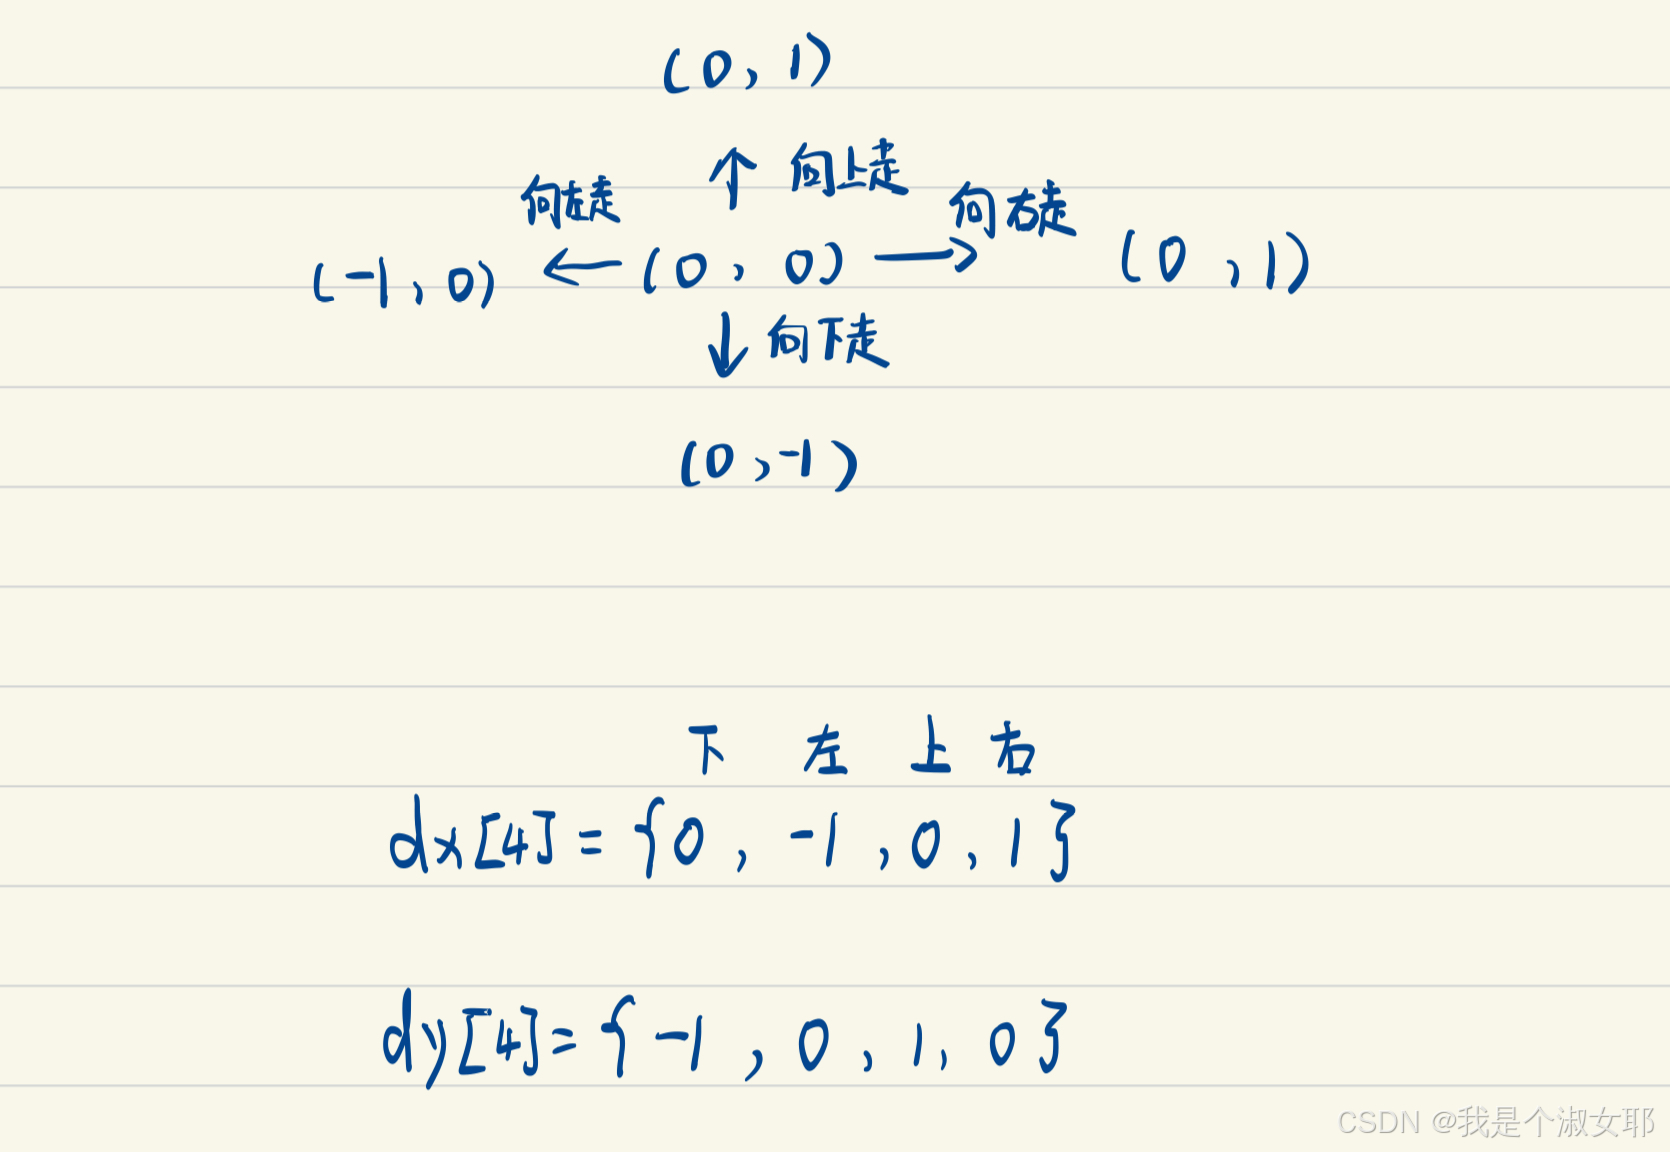 (0, 1)
↑ 向上走
向左走
向右走
(-1, 0) ← (0, 0) → (0, 1)
↓ 向下走
(0, -1)
下 左 上 右
dx[4] = {0, -1, 0, 1}
dy[4] = {-1, 0, 1, 0}
CSDN @我是个淑女耶